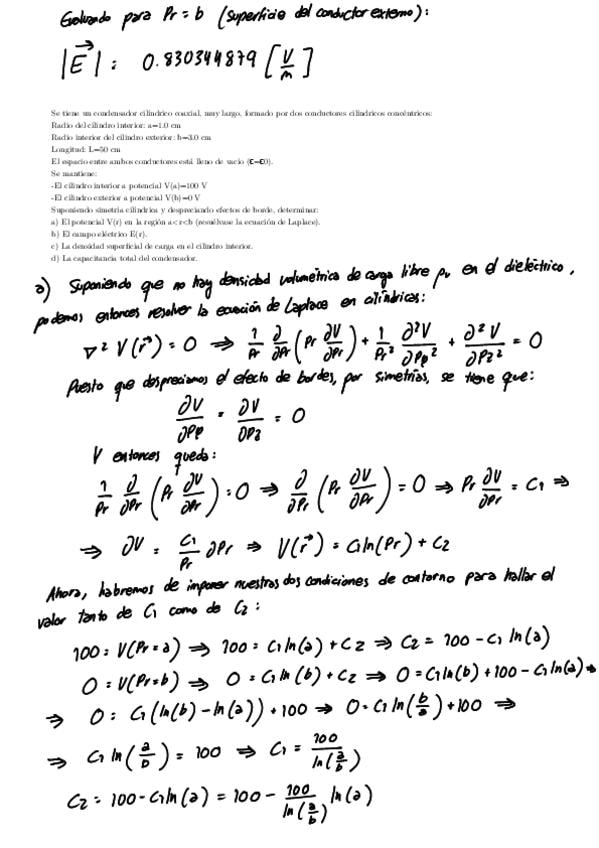 Evaluando para Pr = b (superficie del conductor externo):
|E⃗| = 0.830344879 [V/m]
Se tiene un condensador cilíndrico coaxial, muy largo, formado por dos conductores cilíndricos concéntricos:
Radio del cilindro interior: a=1.0 cm
Radio interior del cilindro exterior: b=3.0 cm
Longitud: L=50 cm
El espacio entre ambos conductores está lleno de vacío (ε=ε0).
Se mantiene:
-El cilindro interior a potencial V(a)=100 V
-El cilindro exterior a potencial V(b)=0 V
Suponiendo simetría cilíndrica y despreciando efectos de borde, determinar:
a) El potencial V(r) en la región a<r<b (resuélvase la ecuación de Laplace).
b) El campo eléctrico E(r).
c) La densidad superficial de carga en el cilindro interior.
d) La capacitancia total del condensador.
a) Suponiendo que no hay densidad volumétrica de carga libre ρv en el dieléctrico,
podemos entonces resolver la ecuación de Laplace en cilíndricas:
∇² V(r⃗) = 0 ⇒ 1/Pr ∂/∂Pr (Pr ∂V/∂Pr) + 1/Pr² ∂²V/∂Pφ² + ∂²V/∂Pz² = 0
Puesto que despreciamos el efecto de bordes, por simetrías, se tiene que:
∂V/∂Pφ = ∂V/∂Pz = 0
V entonces queda:
1/Pr ∂/∂Pr (Pr ∂V/∂Pr) = 0 ⇒ ∂/∂Pr (Pr ∂V/∂Pr) = 0 ⇒ Pr ∂V/∂Pr = C1 ⇒
⇒ ∂V = C1/Pr ∂Pr ⇒ V(r⃗) = C1 ln(Pr) + C2
Ahora, habremos de imponer nuestras dos condiciones de contorno para hallar el
valor tanto de C1 como de C2:
100 = V(Pr=a) ⇒ 100 = C1 ln(a) + C2 ⇒ C2 = 100 - C1 ln(a)
0 = V(Pr=b) ⇒ 0 = C1 ln(b) + C2 ⇒ 0 = C1 ln(b) + 100 - C1 ln(a) ⇒
⇒ 0 = C1 (ln(b) - ln(a)) + 100 ⇒ 0 = C1 ln(b/a) + 100 ⇒
⇒ C1 ln(a/b) = 100 ⇒ C1 = 100/ln(a/b)
C2 = 100 - C1 ln(a) = 100 - 100/ln(a/b) ln(a)